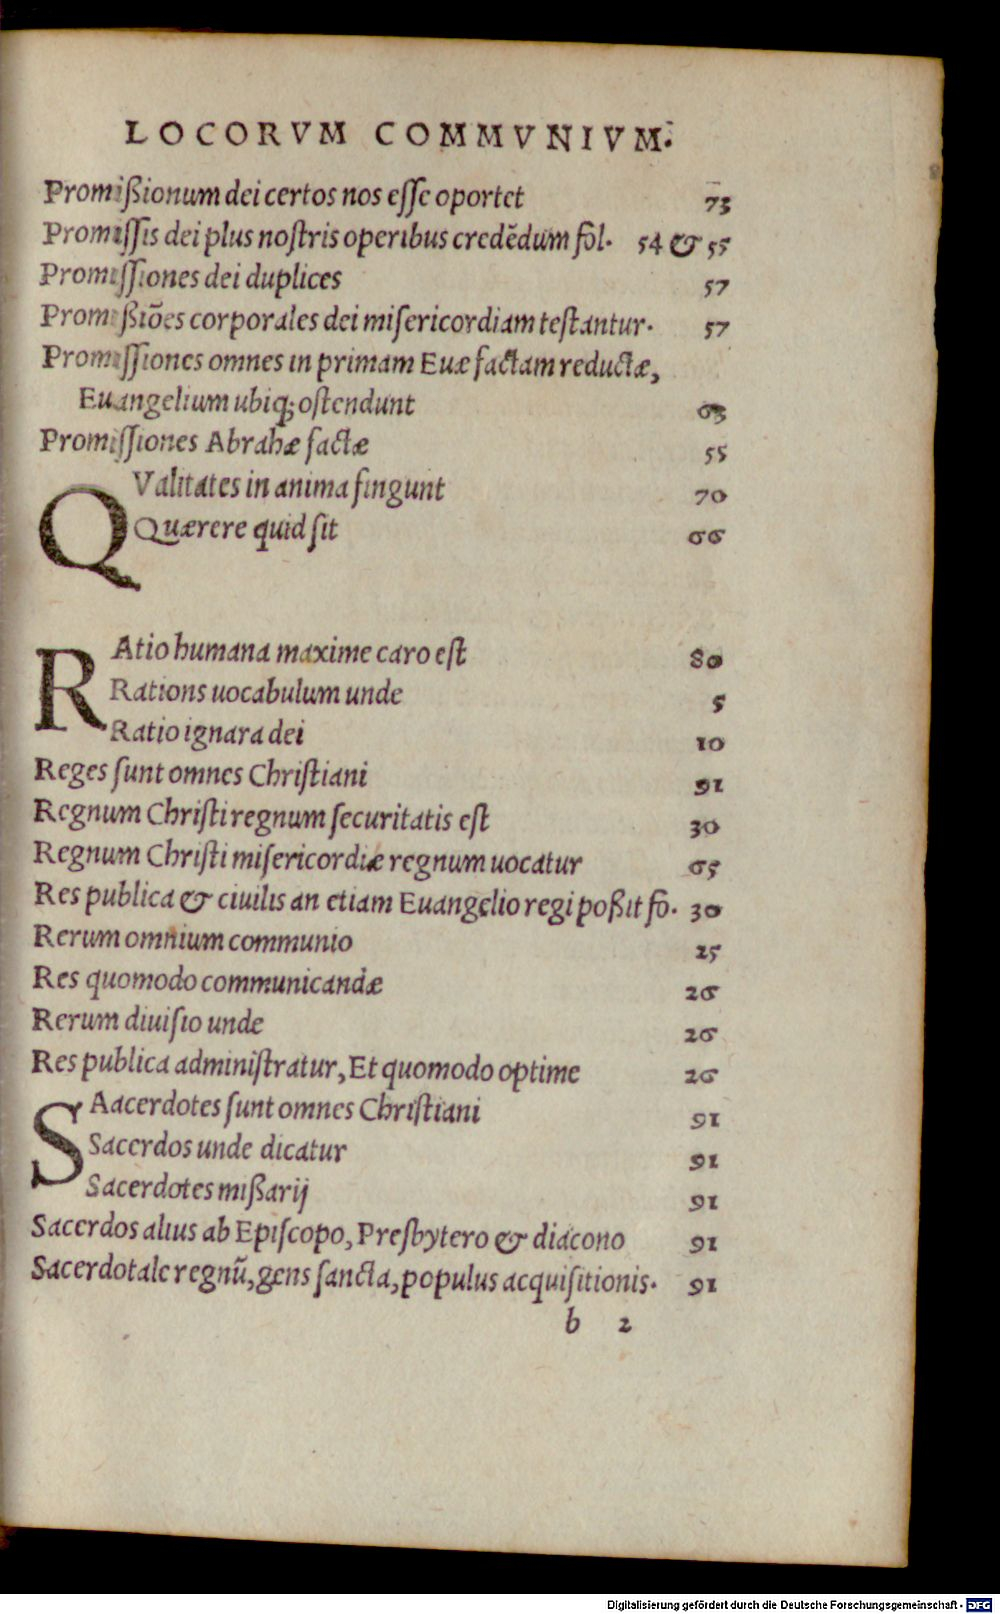 LOCORVM COMMVNIVM.
Promißionum dei certos nos eſſe oportet 73
Promiſſis dei plus noſtris operibus credēdum fol. 54 & 55
Promiſſiones dei duplices 57
Promißiões corporales dei miſericordiam teſtantur. 57
Promiſſiones omnes in primam Euæ factam reductæ,
Euangelium ubiq; oſtendunt 63
Promiſſiones Abrahæ factæ 55
QValitates in anima fingunt 70
Quærere quid ſit 66
RAtio humana maxime caro eſt 80
Rations uocabulum unde 5
Ratio ignara dei 10
Reges ſunt omnes Chriſtiani 91
Regnum Chriſti regnum ſecuritatis eſt 30
Regnum Chriſti miſericordiæ regnum uocatur 65
Res publica & ciuilis an etiam Euangelio regi poßit fo. 30
Rerum omnium communio 25
Res quomodo communicandæ 26
Rerum diuiſio unde 26
Res publica adminiſtratur, Et quomodo optime 26
SAacerdotes ſunt omnes Chriſtiani 91
Sacerdos unde dicatur 91
Sacerdotes mißarij 91
Sacerdos alius ab Epiſcopo, Preſbytero & diacono 91
Sacerdotale regnū, gens ſancta, populus acquiſitionis. 91
b 2
Digitalisierung gefördert durch die Deutsche Forschungsgemeinschaft - DFG